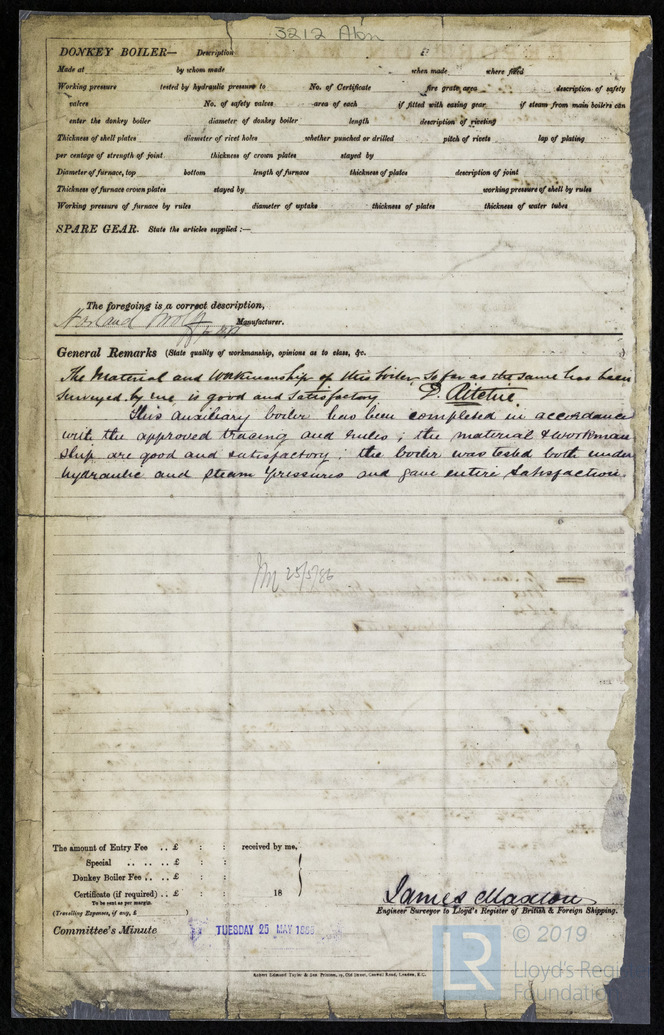 3212 Abn
DONKEY BOILER— Description
Made at by whom made when made where fixed
Working pressure tested by hydraulic pressure to No. of Certificate fire grate area description of safety
valves No. of safety valves area of each if fitted with easing gear if steam from main boilers can
enter the donkey boiler diameter of donkey boiler length description of riveting
Thickness of shell plates diameter of rivet holes whether punched or drilled pitch of rivets lap of plating
per centage of strength of joint thickness of crown plates stayed by
Diameter of furnace, top bottom length of furnace thickness of plates description of joint
Thickness of furnace crown plates stayed by working pressure of shell by rules
Working pressure of furnace by rules diameter of uptake thickness of plates thickness of water tubes
SPARE GEAR. State the articles supplied :—
The foregoing is a correct description,
Harland Wolff Manufacturer.
General Remarks (State quality of workmanship, opinions as to class, &c.
The Material and Workmanship of this boiler, so far as the same has been
Surveyed by me is good and satisfactory D. Ritchie.
This auxiliary boiler has been completed in accordance
with the approved tracing and rules; the material & workman
ship are good and satisfactory; the boiler was tested both under
hydraulic and steam pressures and gave entire satisfaction.
25/5/86
The amount of Entry Fee . . £ : : received by me,
Special . . . . . . £ : :
Donkey Boiler Fee . . . . £ : :
Certificate (if required) . . £ : : 18
To be sent as per margin.
(Travelling Expenses, if any, £ )
James Maxton
Engineer Surveyor to Lloyd's Register of British & Foreign Shipping.
Committee's Minute TUESDAY 25 MAY 1886
Robert Edmund Taylor & Son Printers, 19, Old Street, Goswell Road, London, E.C.
LR © 2019
Lloyd's Register
Foundation